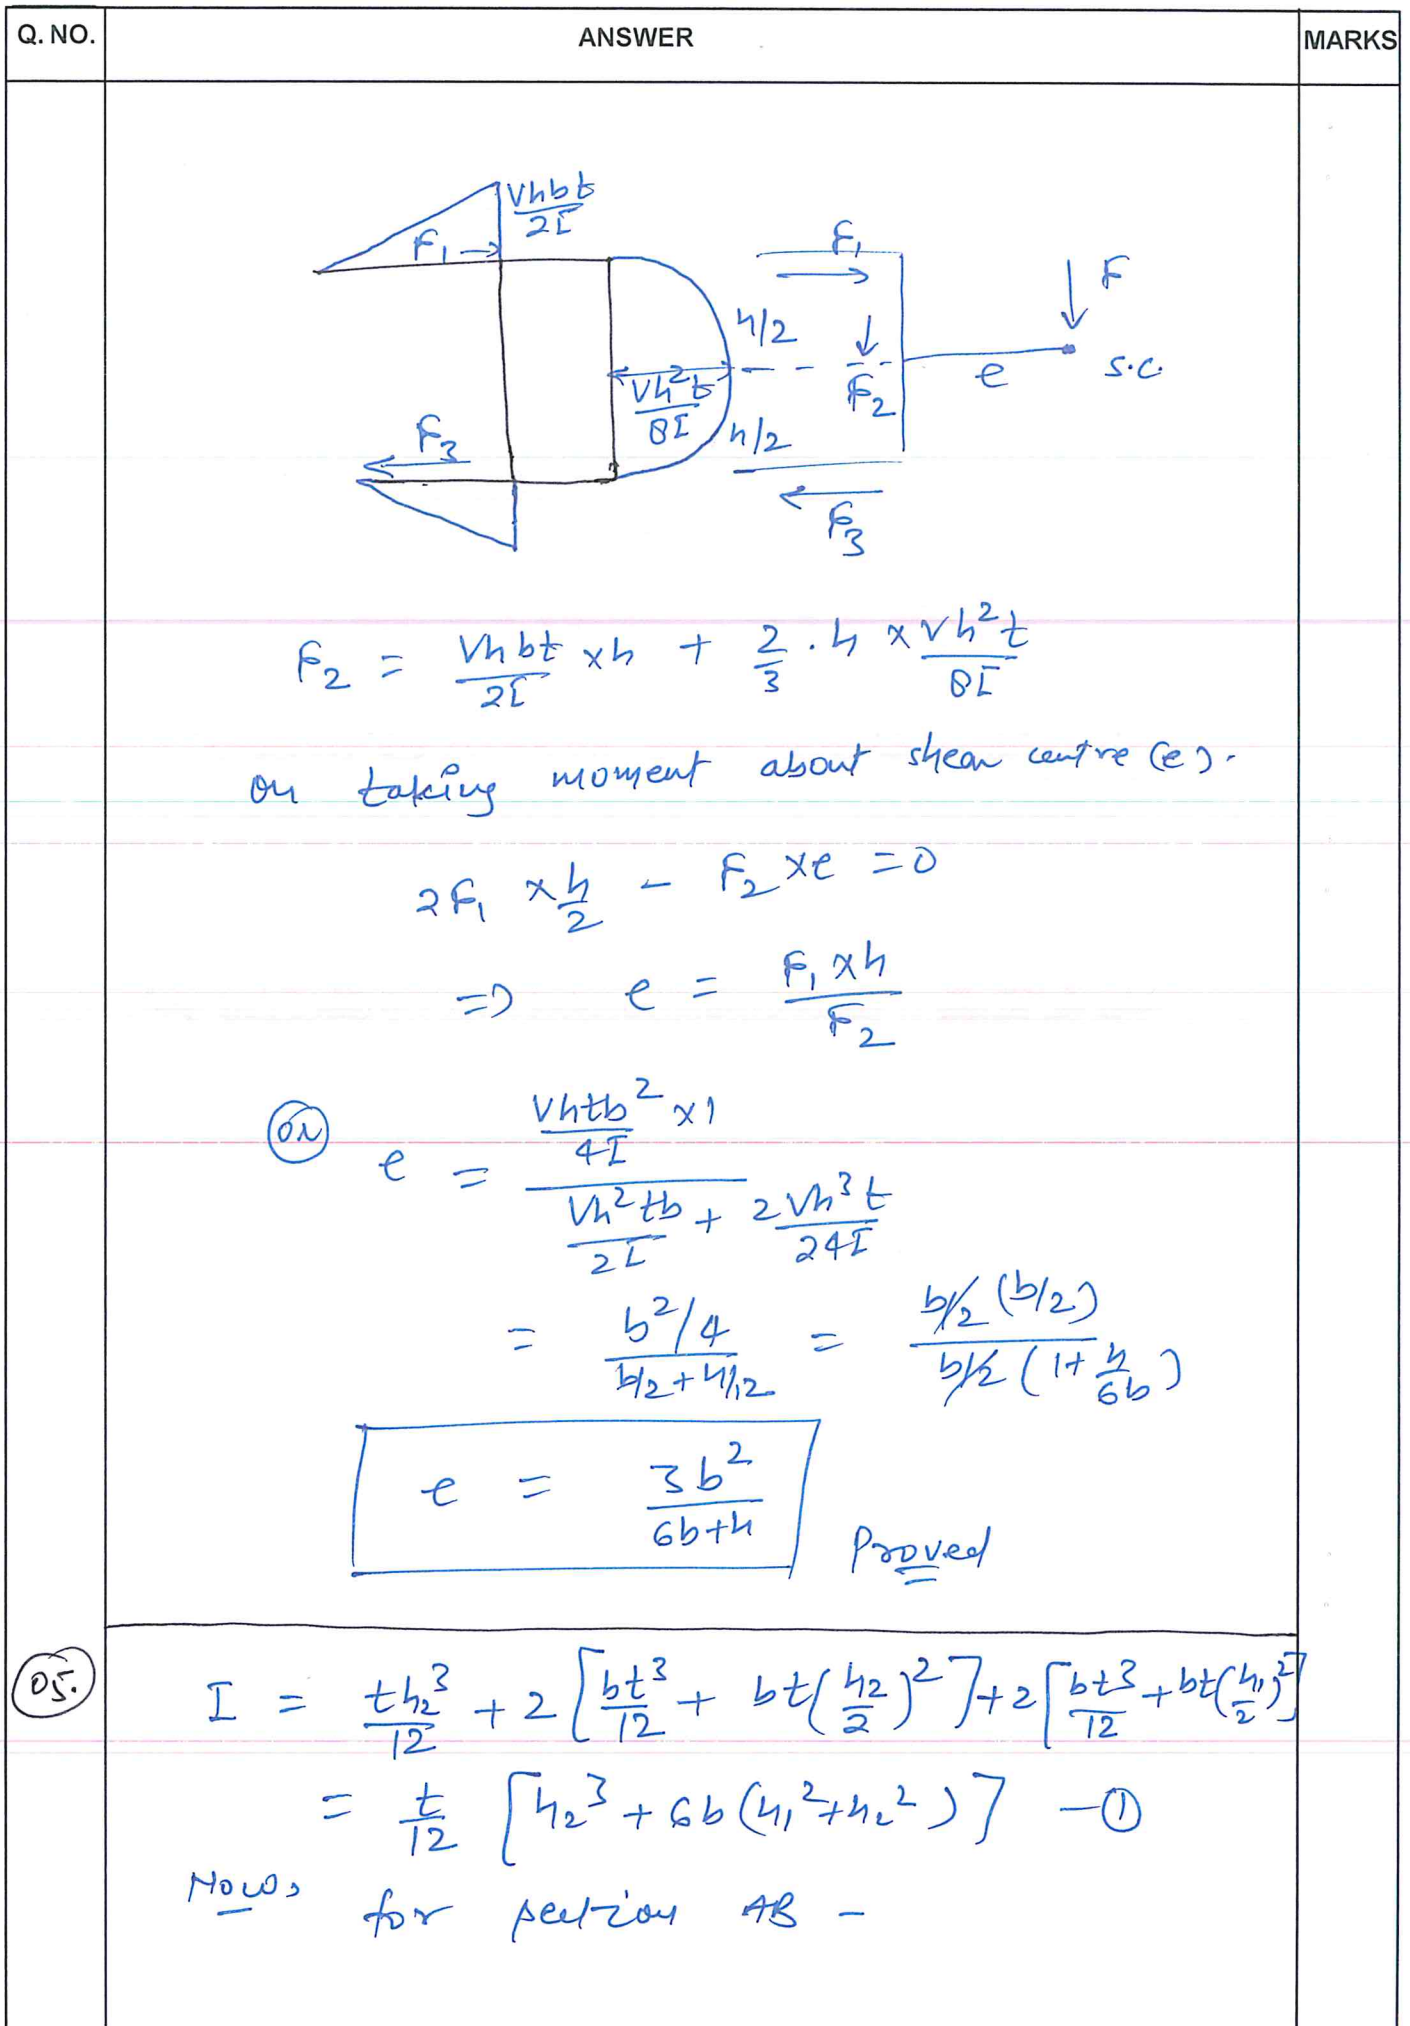 Q. NO. ANSWER MARKS
Vhbt/2I
F₁ →
F₁
F
h/2
Vh²t/8I
F₂
e
S.C.
F₃
h/2
F₃
F₂ = Vhbt/2I × h + 2/3 · h × Vh²t/8I
On taking moment about shear centre (e).
2F₁ × h/2 - F₂ × e = 0
=> e = F₁ × h / F₂
(or) e = (Vhtb²/4I × 1) / (Vh²tb/2I + 2Vh³t/24I)
= (b²/4) / (b/2 + h/12) = b/2 (b/2) / b/2 (1 + h/6b)
e = 3b² / (6b+h)
Proved
05. I = th₂³/12 + 2[bt³/12 + bt(h₂/2)²] + 2[bt³/12 + bt(h₁/2)²]
= t/12 [h₂³ + 6b(h₁² + h₂²)] — ①
Now, for section AB -